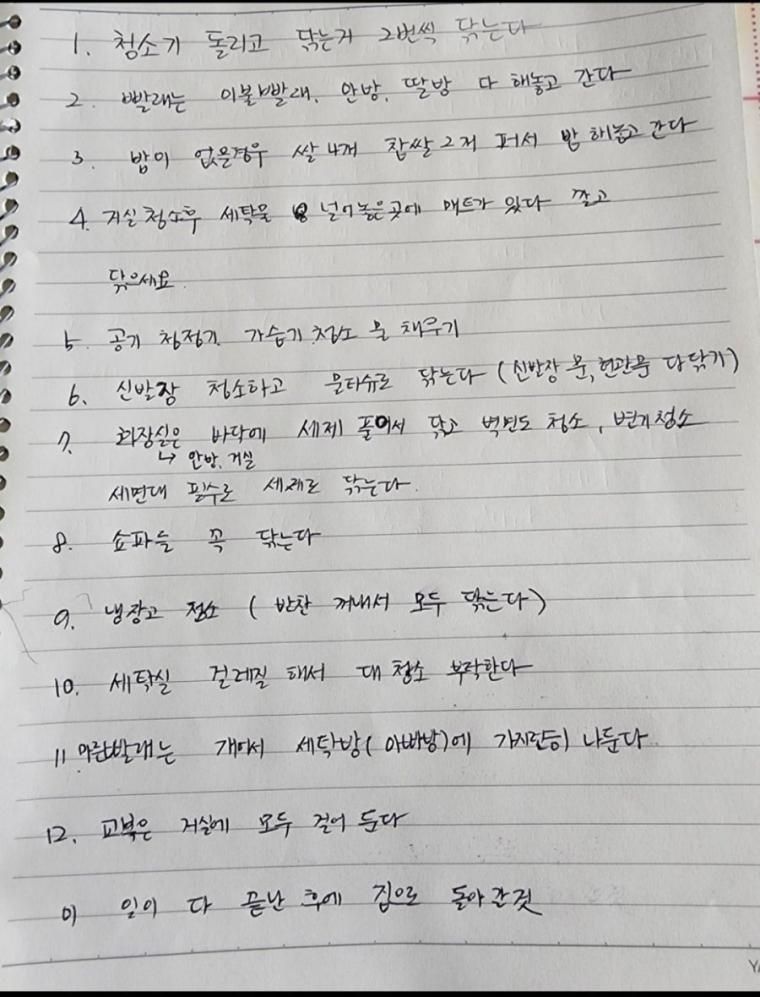 1. 청소기 돌리고 닦는거 2번씩 닦는다
2. 빨래는 이불빨래, 안방, 딸방 다 해놓고 간다
3. 밥이 없은경우 쌀 4꺼 찹쌀 2꺼 퍼서 밥 해놓고 간다
4. 거실청소후 세탁물 널어놓은곳에 매트가 있다 깔고
닦으세요
5. 공기 청정기, 가습기 청소 물 채우기
6. 신발장 청소하고 물티슈로 닦는다 (신발장 문, 현관문 다 닦기)
7. 화장실은 바닥에 세제 풀어서 닦고 벽면도 청소, 변기청소
↳ 안방, 거실
세면대 필수로 세제로 닦는다.
8. 쇼파들 꼭 닦는다
9. 냉장고 청소 (반찬 꺼내서 모두 닦는다)
10. 세탁실 걸레질 해서 대 청소 부탁한다
11 마른빨래는 개어서 세탁방(아빠방)에 가지런히 나둔다.
12. 교복은 거실에 모두 걸어 둔다
이 일이 다 끝난 후에 집으로 돌아 간것